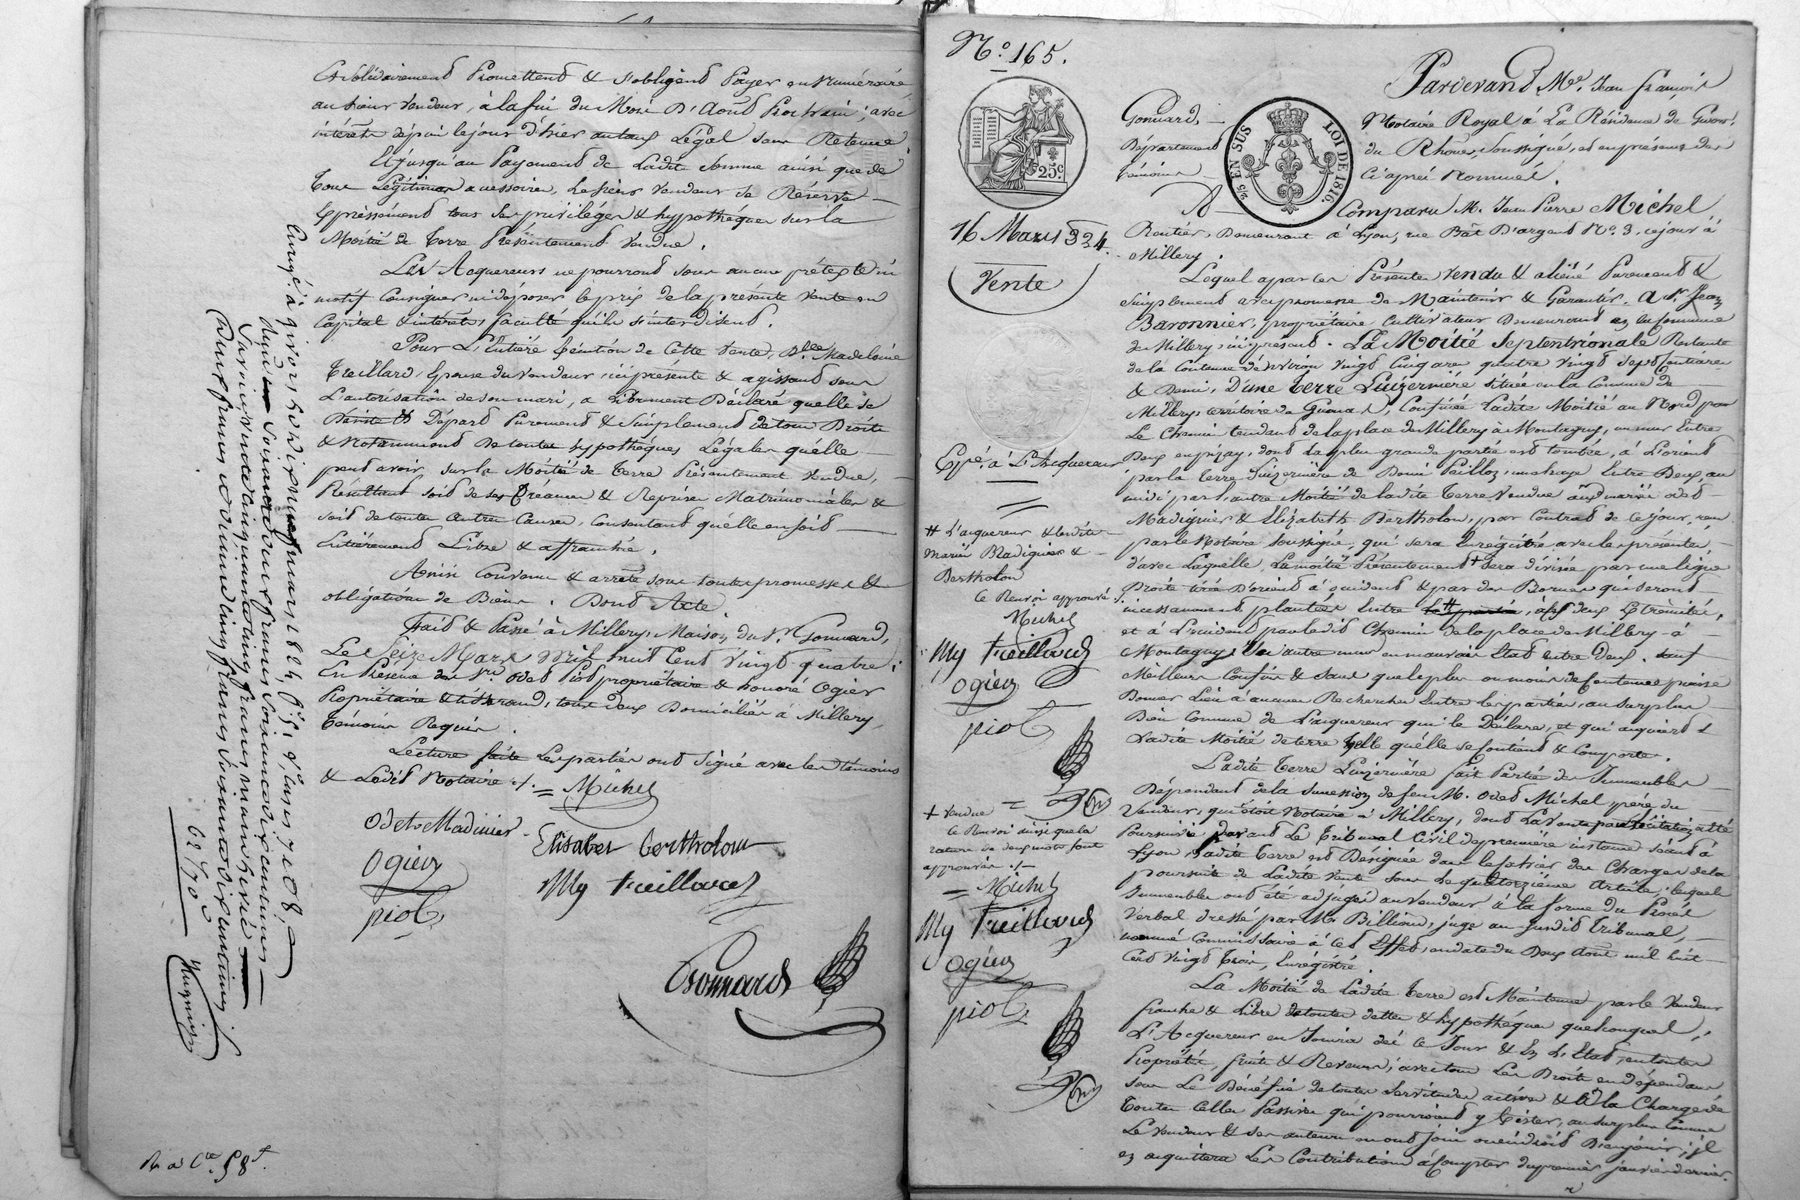 Et solidairement Promettent & s'obligent Payer en Numéraire
au sieur vendeur, à la fin du Mois D'Aout Prochain, avec
intérêts depuis le jour d'hier au taux Légal sans Retenue.
Et jusqu'au Payement de Ladite Somme ainsi que de
tous Légitimes accessoires, le sieur vendeur se Réserve
Expressement tous ses privilèges & hypothèques sur la
Moitié de Terre Présentement Vendue.
Les Acquereurs ne pourront sous aucun prétexte ni
motif Consigner ni déposer le prix de la présente Vente en
Capital & intérêts, faculté qu'ils s'interdisent.
Pour L'Entière Exécution de Cette Vente, Dlle Madeleine
Treillard, Epouse du vendeur ici présente & agissant sous
L'autorisation de son mari, a Librement Déclaré quelle se
Désiste & Départ Purement & Simplement de tous Droits
& Notamment de toutes hypothèques Légales quelle
peut avoir, sur la Moitié de Terre Présentement Vendue,
Résultant soit de ses Créances & Reprises Matrimoniales &
soit de toutes autres Causes, Consentant qu'elle en soit
Entièrement Libre & affranchie.
Ainsi Convenu & arrêté sous toutes promesses &
obligations de Biens. Dont Acte.
Fait & Passé à Millery, Maison du Sr Gonnard,
Le Seize Mars Mil huit Cent Vingt quatre;
En Présence des Srs Odet Piot propriétaire & honoré Ogier
Propriétaire & tisserand, tous deux Domiciliés à Millery,
témoins Requis.
Lecture faite Les parties ont Signé avec les témoins
& Ledit Notaire ./. = Michel
Odet Madinier
Elisabet bertholon
Ogier
My treillard
piot
Gonnard
Enregé. à givors le dix neuf mars 1824 fo. 51
deux francs soixante dix centimes
62f70c
Hugnier
R a Cte. 58 f.
No. 165.
25c
2/5 EN SUS
LOI DE 1816
16 Mars 1824.
Vente
Expé. à L'Acquereur
# L'acquereur & lesdits
mariés Madignier &
Bertholon
Ce Renvoi approuvé
Michel
My treillard
Ogier
piot
+ vendue
Ce Renvoi ainsi que la
rature de deux mots sont
approuvés ./.
= Michel
My treillard
Ogier
piot
Pardevant Me. Jean François
Gonnard, Notaire Royal à La Résidence de Givors,
Département du Rhône, Soussigné, et en présence des
témoins Ci après Nommés.
A Comparu M. Jean Pierre Michel
Rentier, Demeurant à Lyon, rue Bât D'argent No. 3, ce jour à
Millery.
Lequel a par ces Présentes Vendu & aliéné Purement &
Simplement avec promesse de Maintenir & Garantir, à Sr. Jean
Baronnier, propriétaire Cultivateur Demeurant en la Commune
de Millery, ici présent. La Moitié Septentrionale Restante
de la Contenue d'environ Vingt Cinq ares quatre vingt sept Centiares
& Demi, D'une Terre Luzernière située en la Commune de
Millery, territoire de , Confinée Ladite Moitié au Nord par
Le Chemin tendant de la place de Millery à Montagny, un mur Entre
Deux en pizay, dont la plus grande partie est tombée, à L'orient
par la terre Luzernière de Peilloz, Entre Deux, au
midi par L'autre Moitié de ladite Terre Vendue aux mariés Odet
Madignier & Elizabeth Bertholon, par Contrat de ce jour, reçu
par le Notaire soussigné, qui sera Enregistré avec les présentes,
d'avec Laquelle, La moitié Présentement + sera divisée par une ligne
Droite tirée D'orient à occident & par des Bornes qui seront
incessamment plantées entre # à ses deux Extrémités,
et à L'occident par ledit Chemin de la place de Millery à
Montagny, un autre mur en mauvais Etat entre Deux. sauf
Meilleurs Confins & sans que le plus ou moins de Contenue puisse
Donner Lieu à aucunes Recherches Entre les parties, au surplus
Bien Connue de L'acquereur qui le Déclare, et qui acquiert
Ladite Moitié de terre telle qu'elle se Contient & Comporte.
Ladite Terre Luzernière fait Partie des Immeubles
Dépendant de la succession de feu M. Odet Michel père du
Vendeur, qui était Notaire à Millery, dont La vente par licitation a été
Poursuivie Devant Le Tribunal Civil de première instance séant à
Lyon, Ladite Terre est Désignée dans le Cahier des Charges de la
poursuite de Ladite Vente sous Le quatorzième Article, lesquels
Immeubles ont été adjugés au vendeur à la forme du Procès
Verbal dressé par Mr Billioud, juge au susdit Tribunal,
nommé Commissaire à cet Effet, en date du Deux Aout mil huit
Cent Vingt Trois, Enregistré.
La Moitié de Ladite Terre est Maintenue par le Vendeur
franche & Libre de toutes dettes & hypothèques quelconques;
L'Acquereur en Jouira dès ce Jour & En L'Etat, en toute
Propriété, fruits & Revenus, avec tous Les Droits en dépendans
sous Le Bénéfice de toutes servitudes actives & à la Charge de
Toutes Celles Passives qui pourroient y Exister, au surplus Comme
Le Vendeur & ses auteurs en ont joui ou eu droit D'en jouir; il
en acquittera Les Contributions à Compter du premier janvier dernier.